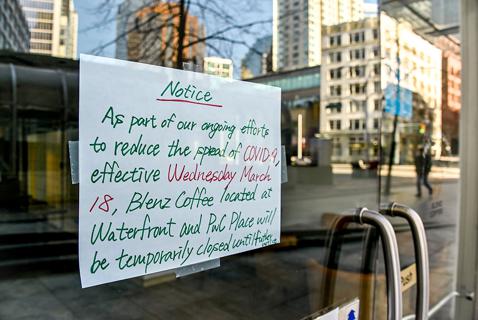 Notice
As part of our ongoing efforts
to reduce the spread of COVID-19,
effective Wednesday March
18, Blenz Coffee located at
Waterfront and PwC Place will
be temporarily closed until further